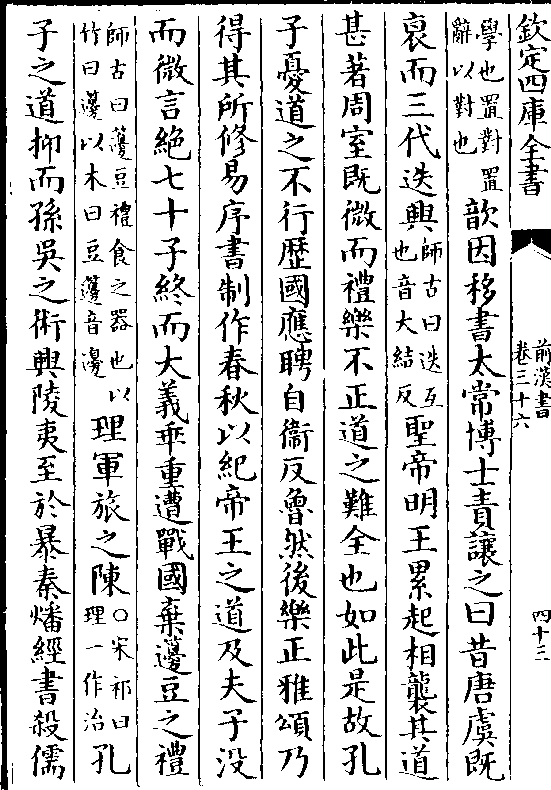 欽定四庫全書
前漢書
卷三十六
四十三
學也置對置
辭以對也
歆因移書太常博士責讓之曰昔唐虞既
衰而三代迭興
師古曰迭互
也音大結反
聖帝明王累起相襲其道
甚著周室既微而禮樂不正道之難全也如此是故孔
子憂道之不行歴國應聘自衞反魯然後樂正雅頌乃
得其所修易序書制作春秋以紀帝王之道及夫子没
而微言絶七十子終而大義乖重遭戰國棄籩豆之禮
師古曰籩豆禮食之器也以
竹曰籩以木曰豆籩音邊
理軍旅之陳
○宋祁曰
理一作治
孔
子之道抑而孫吳之術興陵夷至於暴秦燔經書殺儒